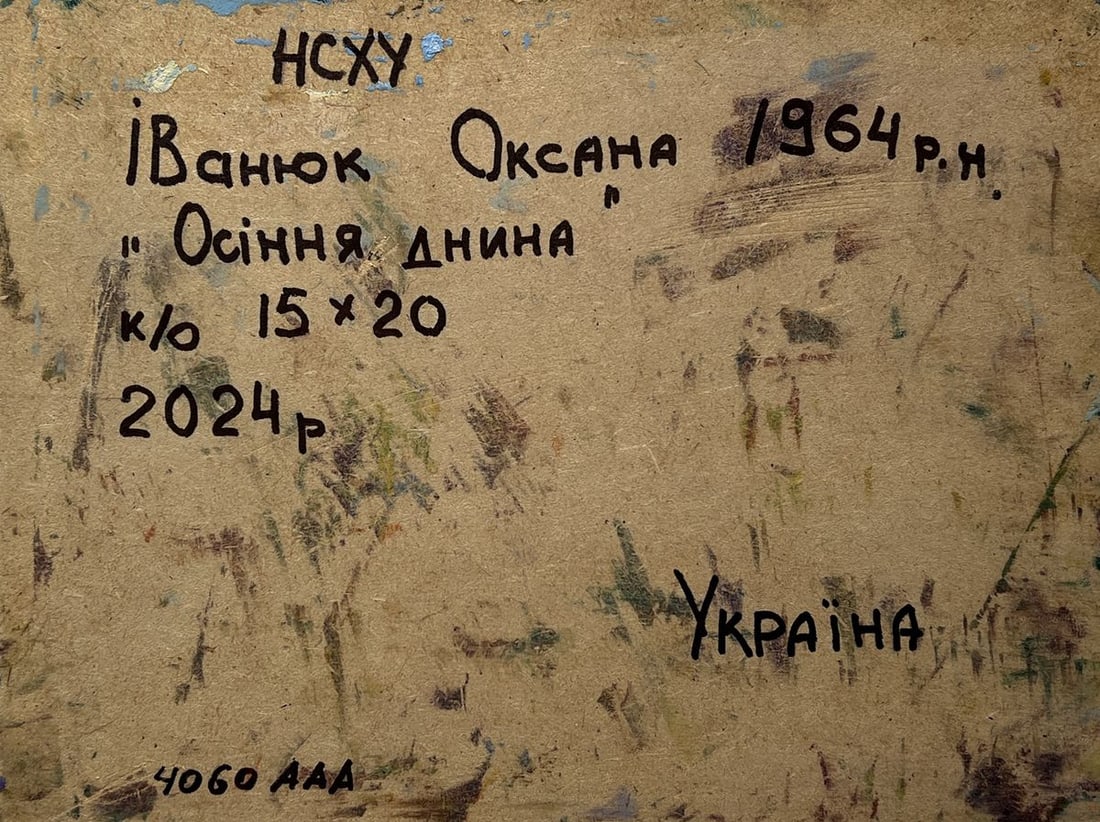 НСХУ
Іванюк Оксана 1964 р.н.
"Осіння днина"
к/о 15 x 20
2024 р
Україна
4060 ААА